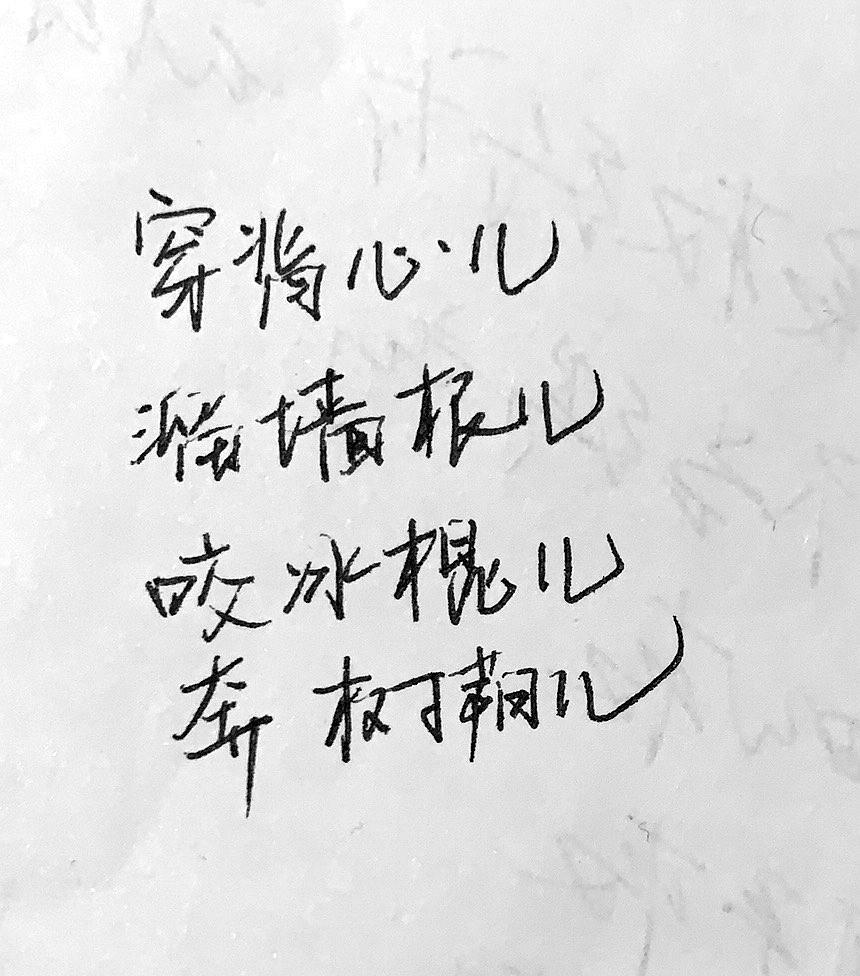 穿背心儿
溜墙根儿
咬冰棍儿
奔树荫儿